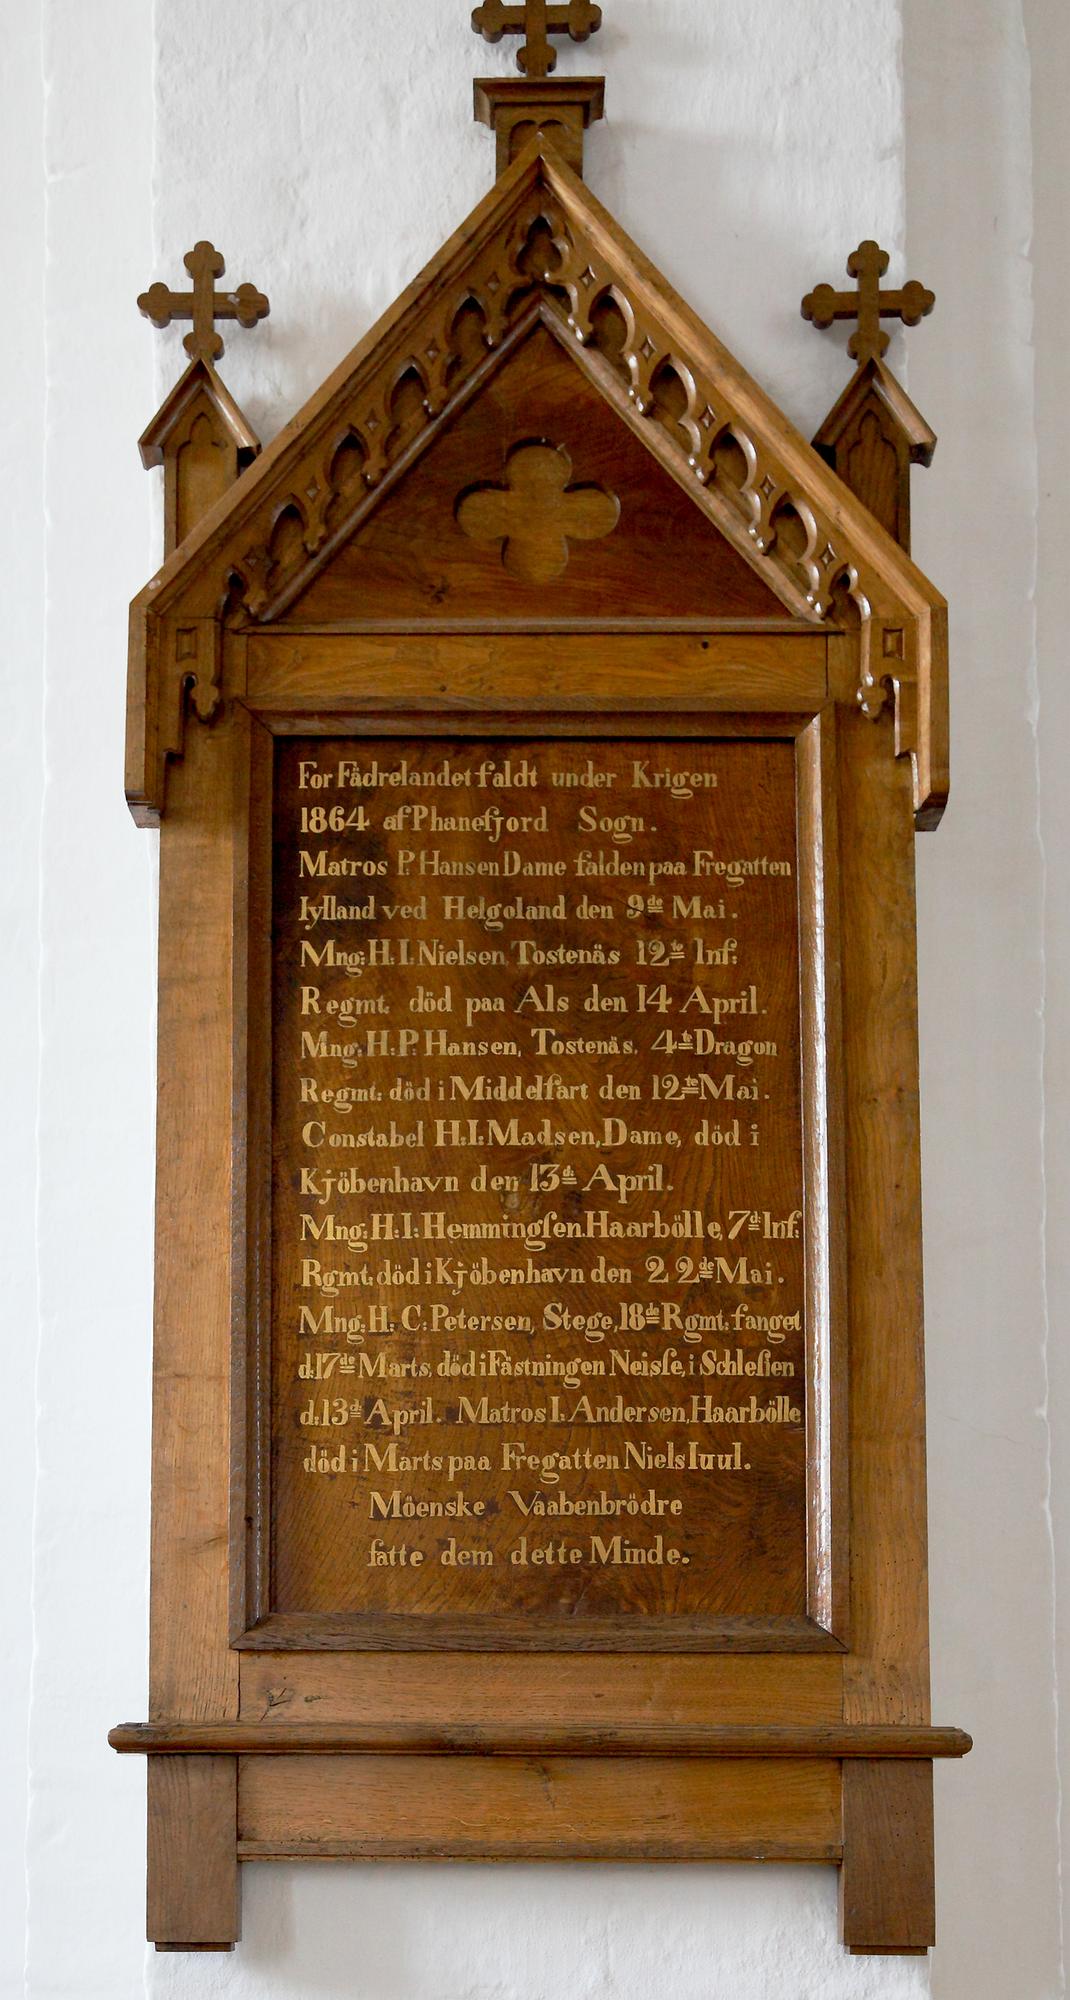 For Fädrelandet faldt under Krigen
1864 af Phanefjord Sogn.
Matros P. Hansen Dame falden paa Fregatten
Iylland ved Helgoland den 9de Mai.
Mng: H. I. Nielsen, Tostenäs 12te Inf:
Regmt. död paa Als den 14 April.
Mng: H: P. Hansen, Tostenäs, 4te Dragon
Regmt: död i Middelfart den 12te Mai.
Constabel H: I: Madsen, Dame, död i
Kjöbenhavn den 13d: April.
Mng: H: I: Hemmingſen. Haarbölle, 7d: Inf:
Rgmt: död i Kjöbenhavn den 22de Mai.
Mng: H: C: Petersen, Stege, 18de Rgmt: fanget
d: 17de Marts, död i Fästningen Neisſe, i Schleſien
d: 13d: April. Matros I: Andersen, Haarbölle
död i Marts paa Fregatten Niels Iuul.
Möenske Vaabenbrödre
ſatte dem dette Minde.